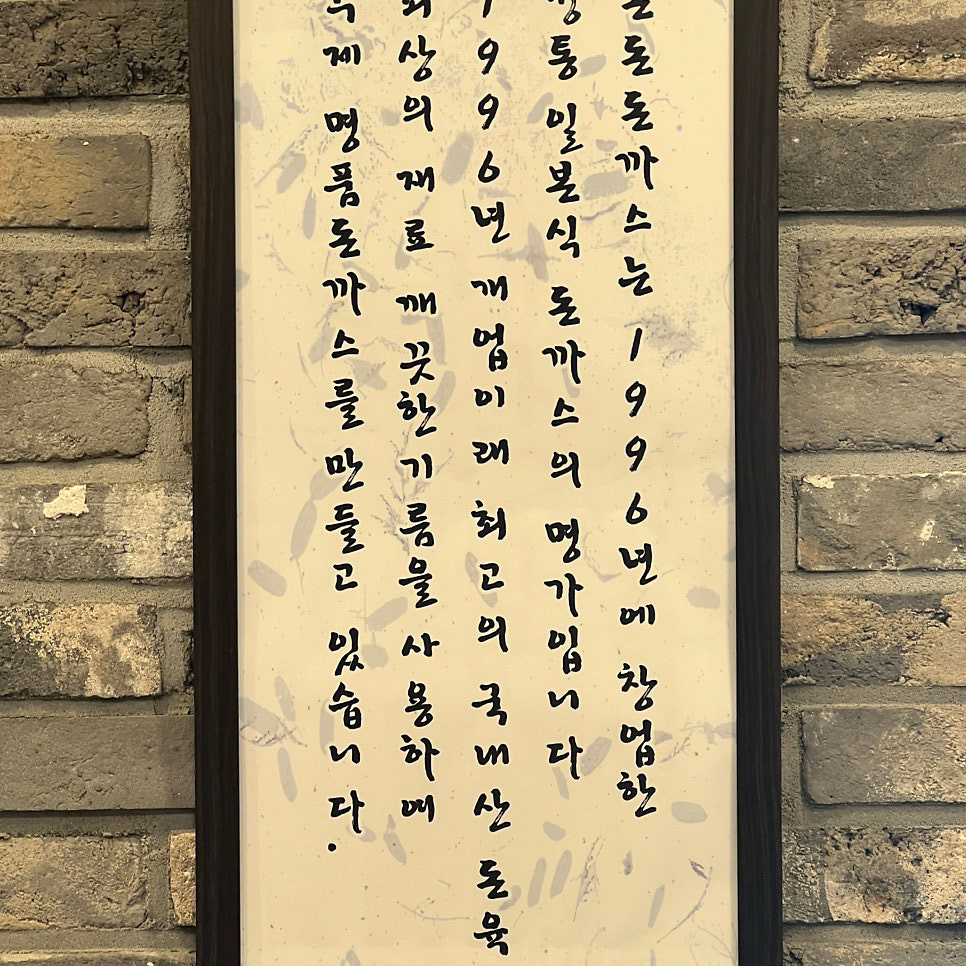 돈돈까스는 1996년에 창업한
통 일본식 돈까스의 명가입니다
996년 개업이래 최고의 국내산 돈육
상의 재료 깨끗한 기름을 사용하여
제 명품돈까스를 만들고 있습니다.